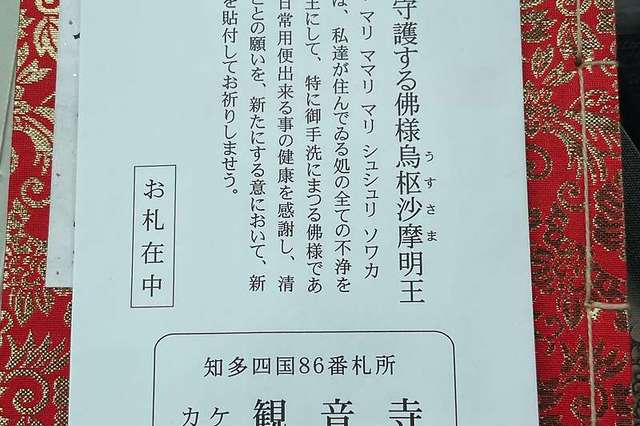 守護する佛様烏枢沙摩明王
うすさま
マリ ママリ マリ シュシュリ ソワカ
は、私達が住んでゐる処の全ての不浄を
王にして、特に御手洗にまつる佛様であ
日常用便出来る事の健康を感謝し、清
ことの願いを、新たにする意において、新
を貼付してお祈りしませう。
お札在中
知多四国86番札所
カケ 観音寺